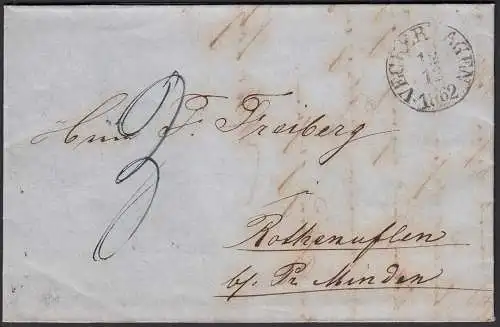 VECKERHAGEN
12
12
1862
3
Herrn F. Freiberg
Rothenuflen
b/. Pr. Minden